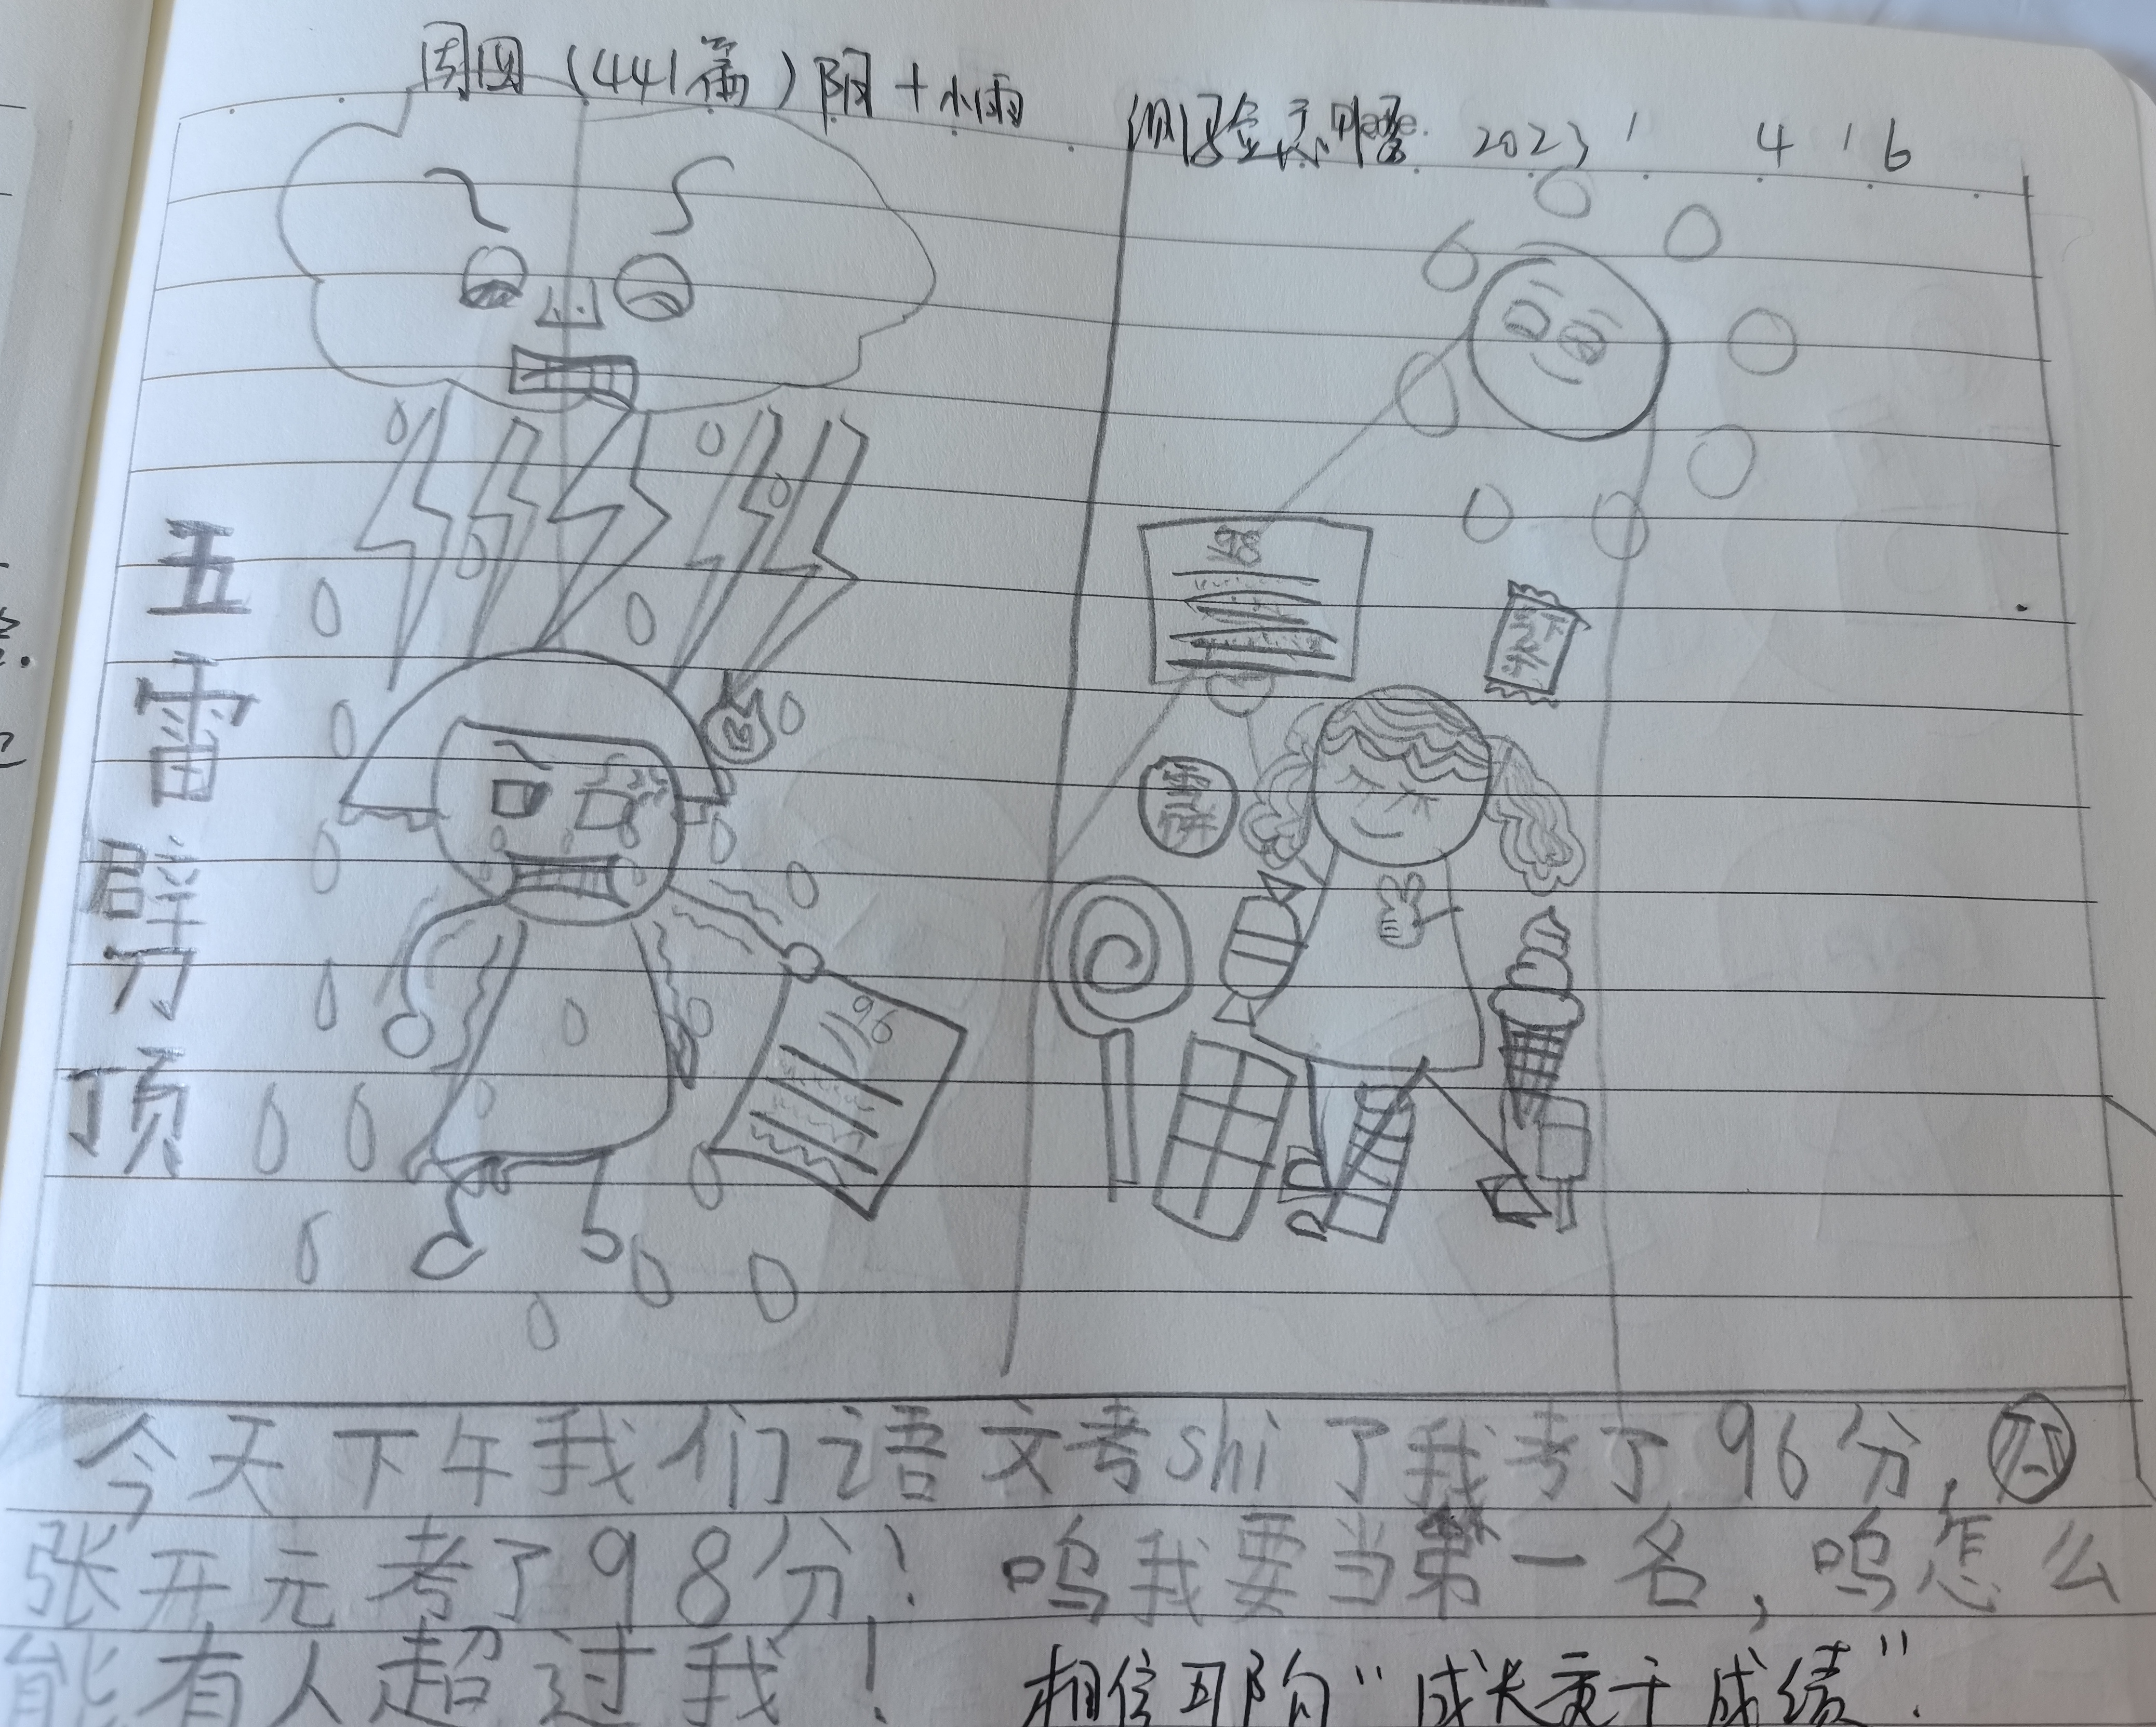 周四（441篇）阴+小雨
2023 4 6
五雷劈顶
98
雪饼
96
今天下午我们语文考shi了我考了96分，
张开元考了98分！呜我要当第一名，呜怎么
能有人超过我！
相信 "成长 于成绩"！